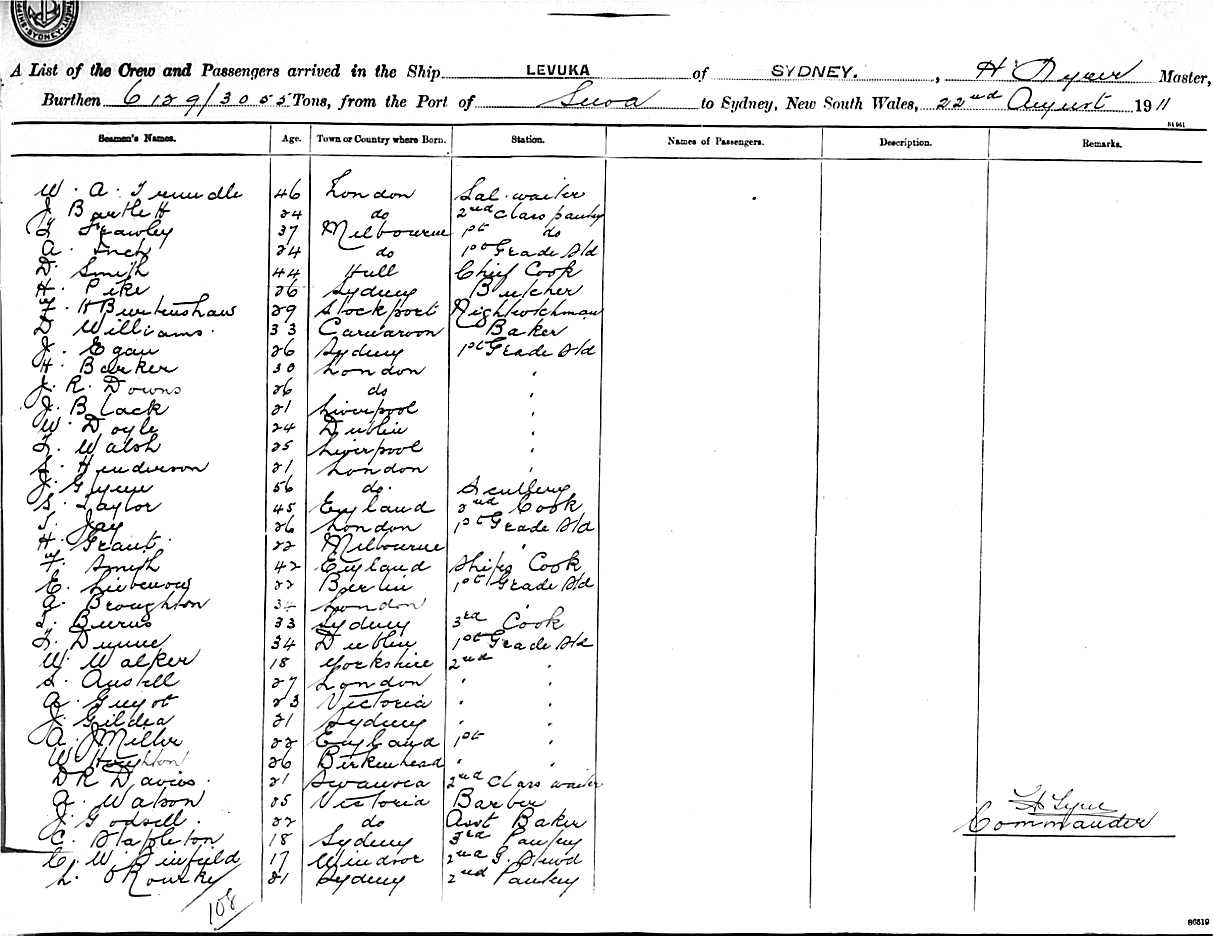 SYDNEY
A List of the Crew and Passengers arrived in the Ship LEVUKA of SYDNEY. , H Master,
Burthen 6129/3055 Tons, from the Port of Suva to Sydney, New South Wales, 22nd August 1911
84961
Seamen's Names. Age. Town or Country where Born. Station. Names of Passengers. Description. Remarks.
W. A. Trundle 46 London Sal. waiter
J Bartlett 24 do 2nd Class pantry
Frawley 37 Melbourne 1st do
A. Inch 24 do 1st Grade Std
D. Smyth 44 Hull Chief Cook
H. Pike 26 Sydney Butcher
F. H Burtenshaw 29 Stockport Nightwatchman
D Williams. 33 Carnarvon Baker
J. Egan 26 Sydney 1st Grade Std
H. Barker 30 London "
J. R. Downs 26 do "
J. Black 21 Liverpool "
W. Doyle 24 Dublin "
T. Walsh 25 Liverpool "
S. Henderson 21 London "
J. Glynn 56 do. Scullery
S. Taylor 45 England 2nd Cook
T. Jay 26 London 1st Grade Std
H. Grant. 22 Melbourne "
F. Smyth 42 England Ships Cook
E. 22 Berlin 1st Grade Std
A. Broughton 34 London "
T. Burns 33 Sydney 3rd Cook
T. Dunne 34 Dublin 1st Grade Std
W. Walker 18 Yorkshire 2nd "
S. Austell 27 London " "
A. Guyot 23 Victoria " "
J. Gildea 21 Sydney " "
A. J Miller 22 England 1st "
W Houghton 26 Birkenhead " "
D R Davies. 21 Swansea 2nd Class waiter
A. Watson 25 Victoria Barber
J. Godsell. 22 do Asst Baker
C. Stapleton 18 Sydney 3rd Pantry
C. W. Binfield 17 Windsor 2nd G. Stwd
L. O'Rourke 21 Sydney 2nd Pantry
H
Commander
108
86819